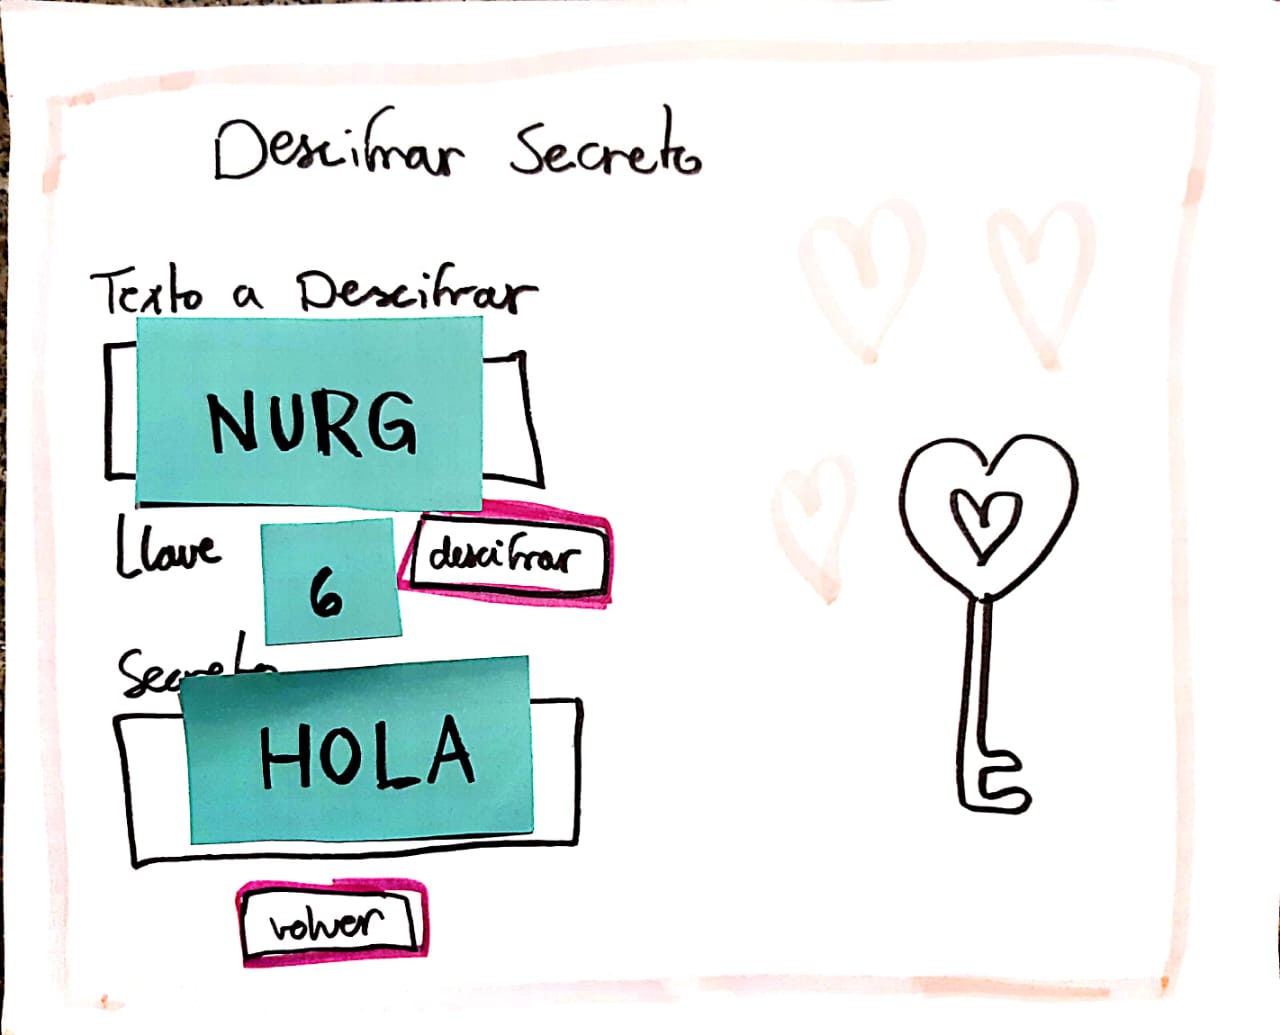 Descifrar Secreto
Texto a Descifrar
NURG
Llave
6
descifrar
Secreto
HOLA
volver